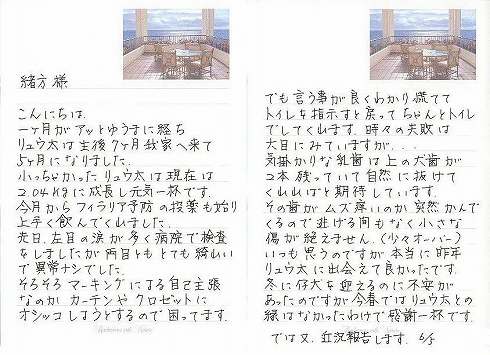 緒方 様
こんにちは。
一ヶ月が アッとゆうまに経ち
リュウ太は 生後7ヶ月 我家へ来て
5ヶ月になりました。
小っちゃかった リュウ太は 現在は
2.04kgに成長し 元気一杯です。
今月から フィラリア予防 の投薬も始り
上手く飲んでくれました。
先日、左目の涙が多く病院で検査
をしましたが 両目とも とても綺麗い
で異常ナシでした。
そろそろ マーキングに よる自己主張
なのか カーテンや クロゼットに
オシッコ しようとするので 困ってます。
でも言う事が良くわかり 慌てて
トイレを指示すと 戻って ちゃんとトイレ
でしてくれます。時々の失敗は
大目にみていますが、...
気掛かりな乳歯は上の犬歯が
2本 残っていて自然に抜けて
くれればと期待しています。
その歯が ムズ痒いのか 突然 かんで
くるので逃げる間もなく小さな
傷が絶えません。(少々オーバー)
いつも思うのですが本当に昨年
リュウ太に出会えて良かったです。
冬に仔犬を迎えるのに不安が
あったのですが今春では リュウ太との
縁はなかったわけで感謝一杯です。
では又、近況報告します。6/5